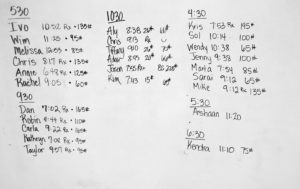 530
Ivo 10:02 Rx • 135#
Wim 11:35 • 95#
Melissa 12:53 • 85#
Chris 8:17 Rx • 135#
Annie 6:48 Rx • 125#
Rachel 9:05 • 60#
930
Dan 7:02 Rx • 165#
Robin 8:44 Rx • 110#
Carla 9:22 Rx • 115#
Kathryn 7:08 Rx • 95#
Taylor 9:57 Rx • 95#
1030
Aly 8:38
Chris 9:13 Rx
Tiffany 9:10 70#
Adair 8:43 60#
Jason 7:58 Rx
Kim 7:43 15#
4:30
Kris 7:53 Rx 145#
Sol 10:14 100#
Wendy 10:38 65#
Jenny 9:38 100#
Maria 7:54 85#
Sara 9:12 65#
Mike 9:12 Rx 135#
5:30
Arshaan 11:20
6:30
Kendra 11:10 75#